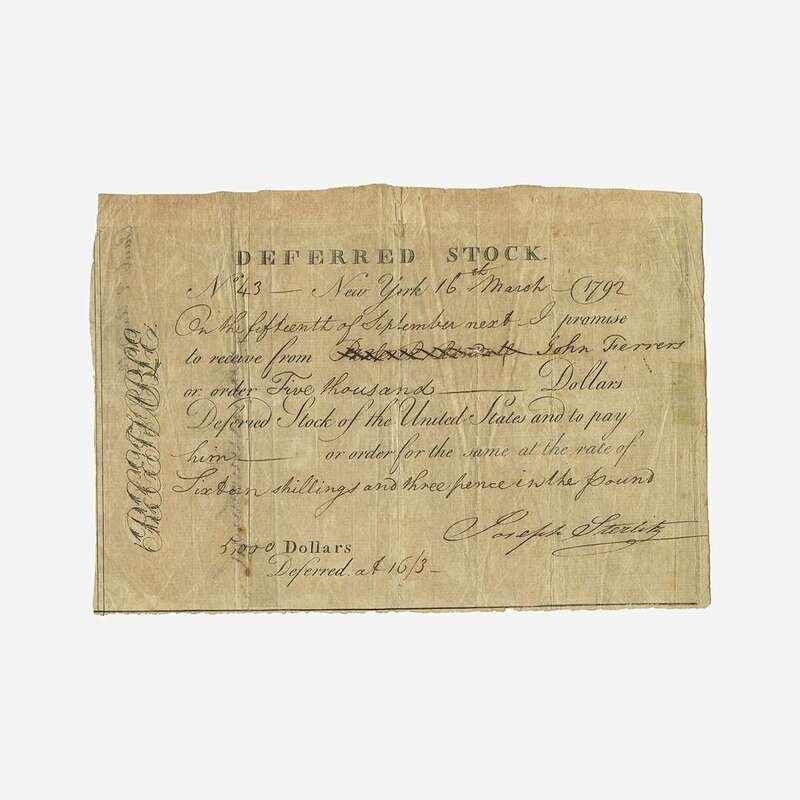 DEFERRED STOCK.
No. 43 — New York 16th March — 1792
On the fifteenth of September next I promise
to receive from John Ferrers
or order Five thousand —— Dollars
Deferred Stock of the United States and to pay
him —— or order for the same at the rate of
Sixteen shillings and three pence in the pound
Joseph
5,000 Dollars
Deferred at 16/3 —
RECEIVABLE.